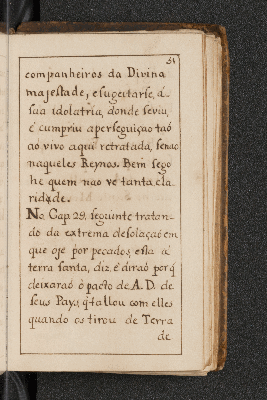 51
companheiros da Divina
magestade, e sugeitarse, á
sua idolatria, donde se viu,
é cumpriu a perseguiçaõ taõ
ao vivo aqui retratada, senaõ
naquelles Reynos. Bem sego
he quem naõ ve tanta cla
ridade.
No Cap. 29. seguinte tratan-
do da extrema desolaçaõ em
que oje por peccados esta á
terra santa, diz, é diraõ porq̃
deixaraõ o pacto de A. D. de
seus Pays, q̃ fallou com elles
quando os tirou de Terra
de